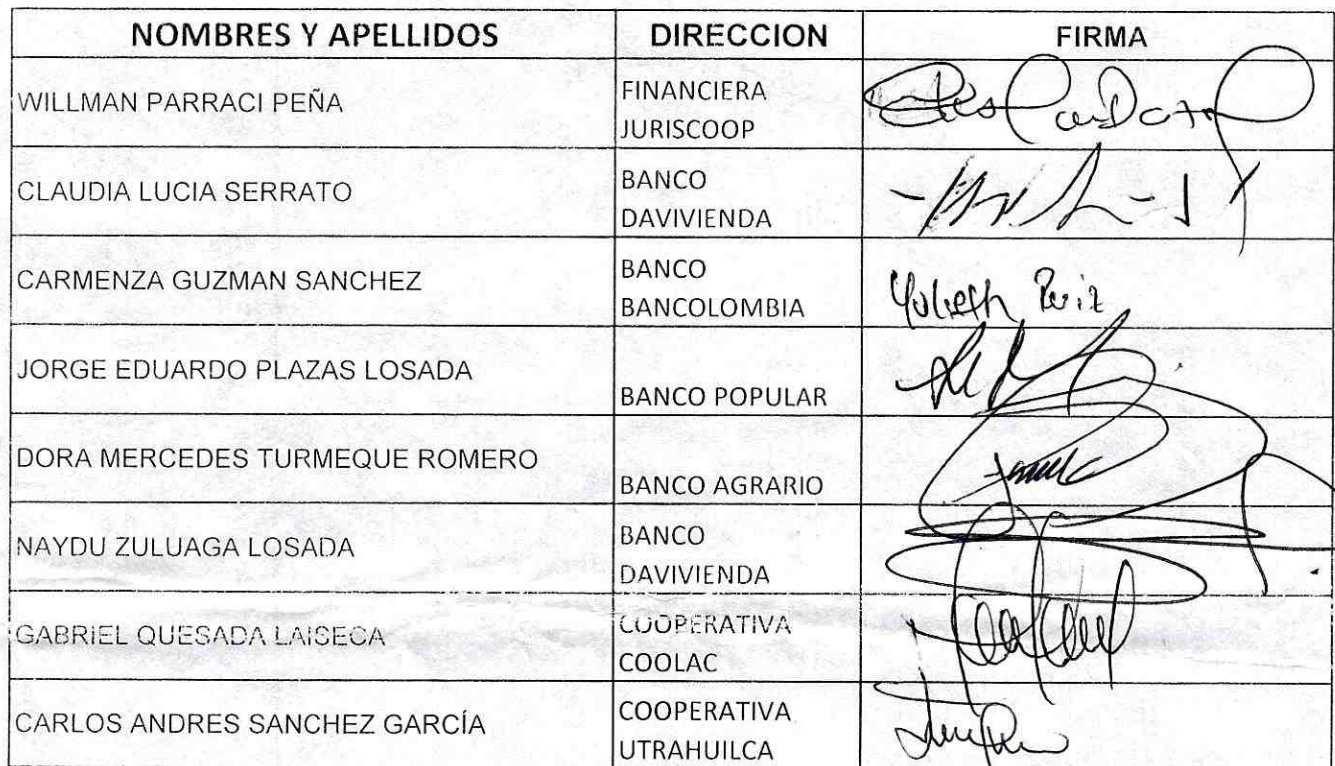 NOMBRES Y APELLIDOS DIRECCION FIRMA
WILLMAN PARRACI PEÑA FINANCIERA
JURISCOOP
CLAUDIA LUCIA SERRATO BANCO
DAVIVIENDA
CARMENZA GUZMAN SANCHEZ BANCO
BANCOLOMBIA Yulieth Ruiz
JORGE EDUARDO PLAZAS LOSADA
BANCO POPULAR
DORA MERCEDES TURMEQUE ROMERO
BANCO AGRARIO
NAYDU ZULUAGA LOSADA BANCO
DAVIVIENDA
GABRIEL QUESADA LAISECA COOPERATIVA
COOLAC
CARLOS ANDRES SANCHEZ GARCÍA COOPERATIVA
UTRAHUILCA